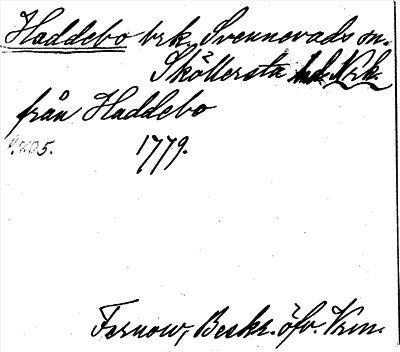 Haddebo brk, Svennevads sn.
Sköllersta hd Nrk.
från Haddebo
1779.
Fernow, Beskr. öfv. Vrm.